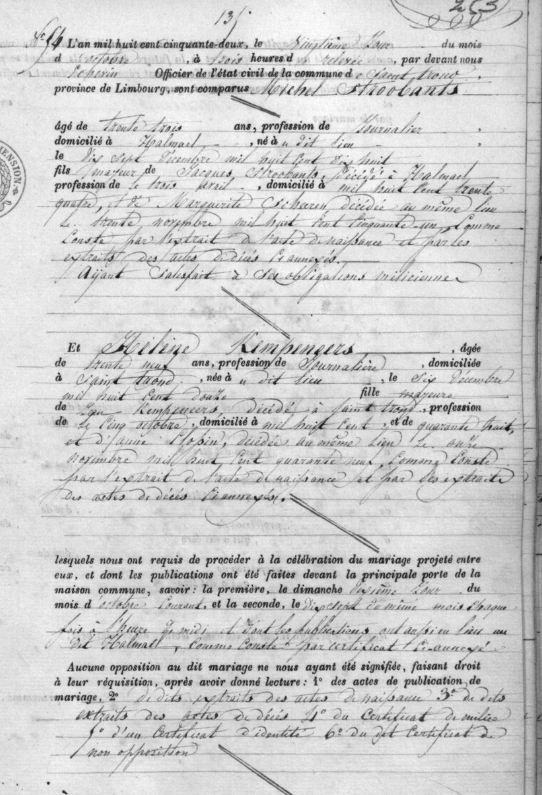 131
253
N° 84 L'an mil huit cent cinquante-deux, le Vingtième Jour du mois
d'octobre, à trois heures d relevée, par devant nous
Officier de l'état civil de la commune de Saint trond,
province de Limbourg, sont comparus Michel Stroobants
âgé de trente trois ans, profession de Journalier
domicilié à Halmael, né à u dit lieu
le Dix Sept Décembre mil huit Cent dix huit
fils majeur de Jacques Stroobants, décédé à Halmael
profession de le trois avril, domicilié à mil huit Cent trente
quatre, & de Marguerite décédée au même lieu
le trente novembre mil huit Cent Cinquante un, Comme
Conste par l'extrait de l'acte de naissance et par les
extraits des actes de décès Ci annexés.
Ayant Satisfait à Ses obligations miliciennes
Et Hélène Kempeneers, âgée
de trente neuf ans, profession de Journalière, domiciliée
à Saint trond, née à u dit lieu, le Six Décembre
mil huit Cent douze fille majeure
de Jean Kempeneers, décédé à Saint trond, profession
de le Cinq octobre, domicilié à mil huit Cent, et de quarante trois,
et d'Anne décédée au même lieu le onze
novembre mil huit Cent quarante neuf, Comme Conste
par l'extrait de l'acte de naissance et par les extraits
des actes de décès Ci annexés.
lesquels nous ont requis de procéder à la célébration du mariage projeté entre
eux, et dont les publications ont été faites devant la principale porte de la
maison commune, savoir: la première, le dimanche dixième Jour du
mois d'octobre Courant, et la seconde, le dix sept du même mois Chaque
fois à l'heure de midi, et dont les publications ont aussi eu lieu au
dit Halmael, comme Conste par certificat Ci annexé
Aucune opposition au dit mariage ne nous ayant été signifiée, faisant droit
à leur réquisition, après avoir donné lecture: 1° des actes de publication de
mariage, 2° de dits extraits des actes de naissance 3° de dits
extraits des actes de décès 4° du Certificat de milice
5° d'un Certificat d'identité 6° du dit Certificat de
non opposition